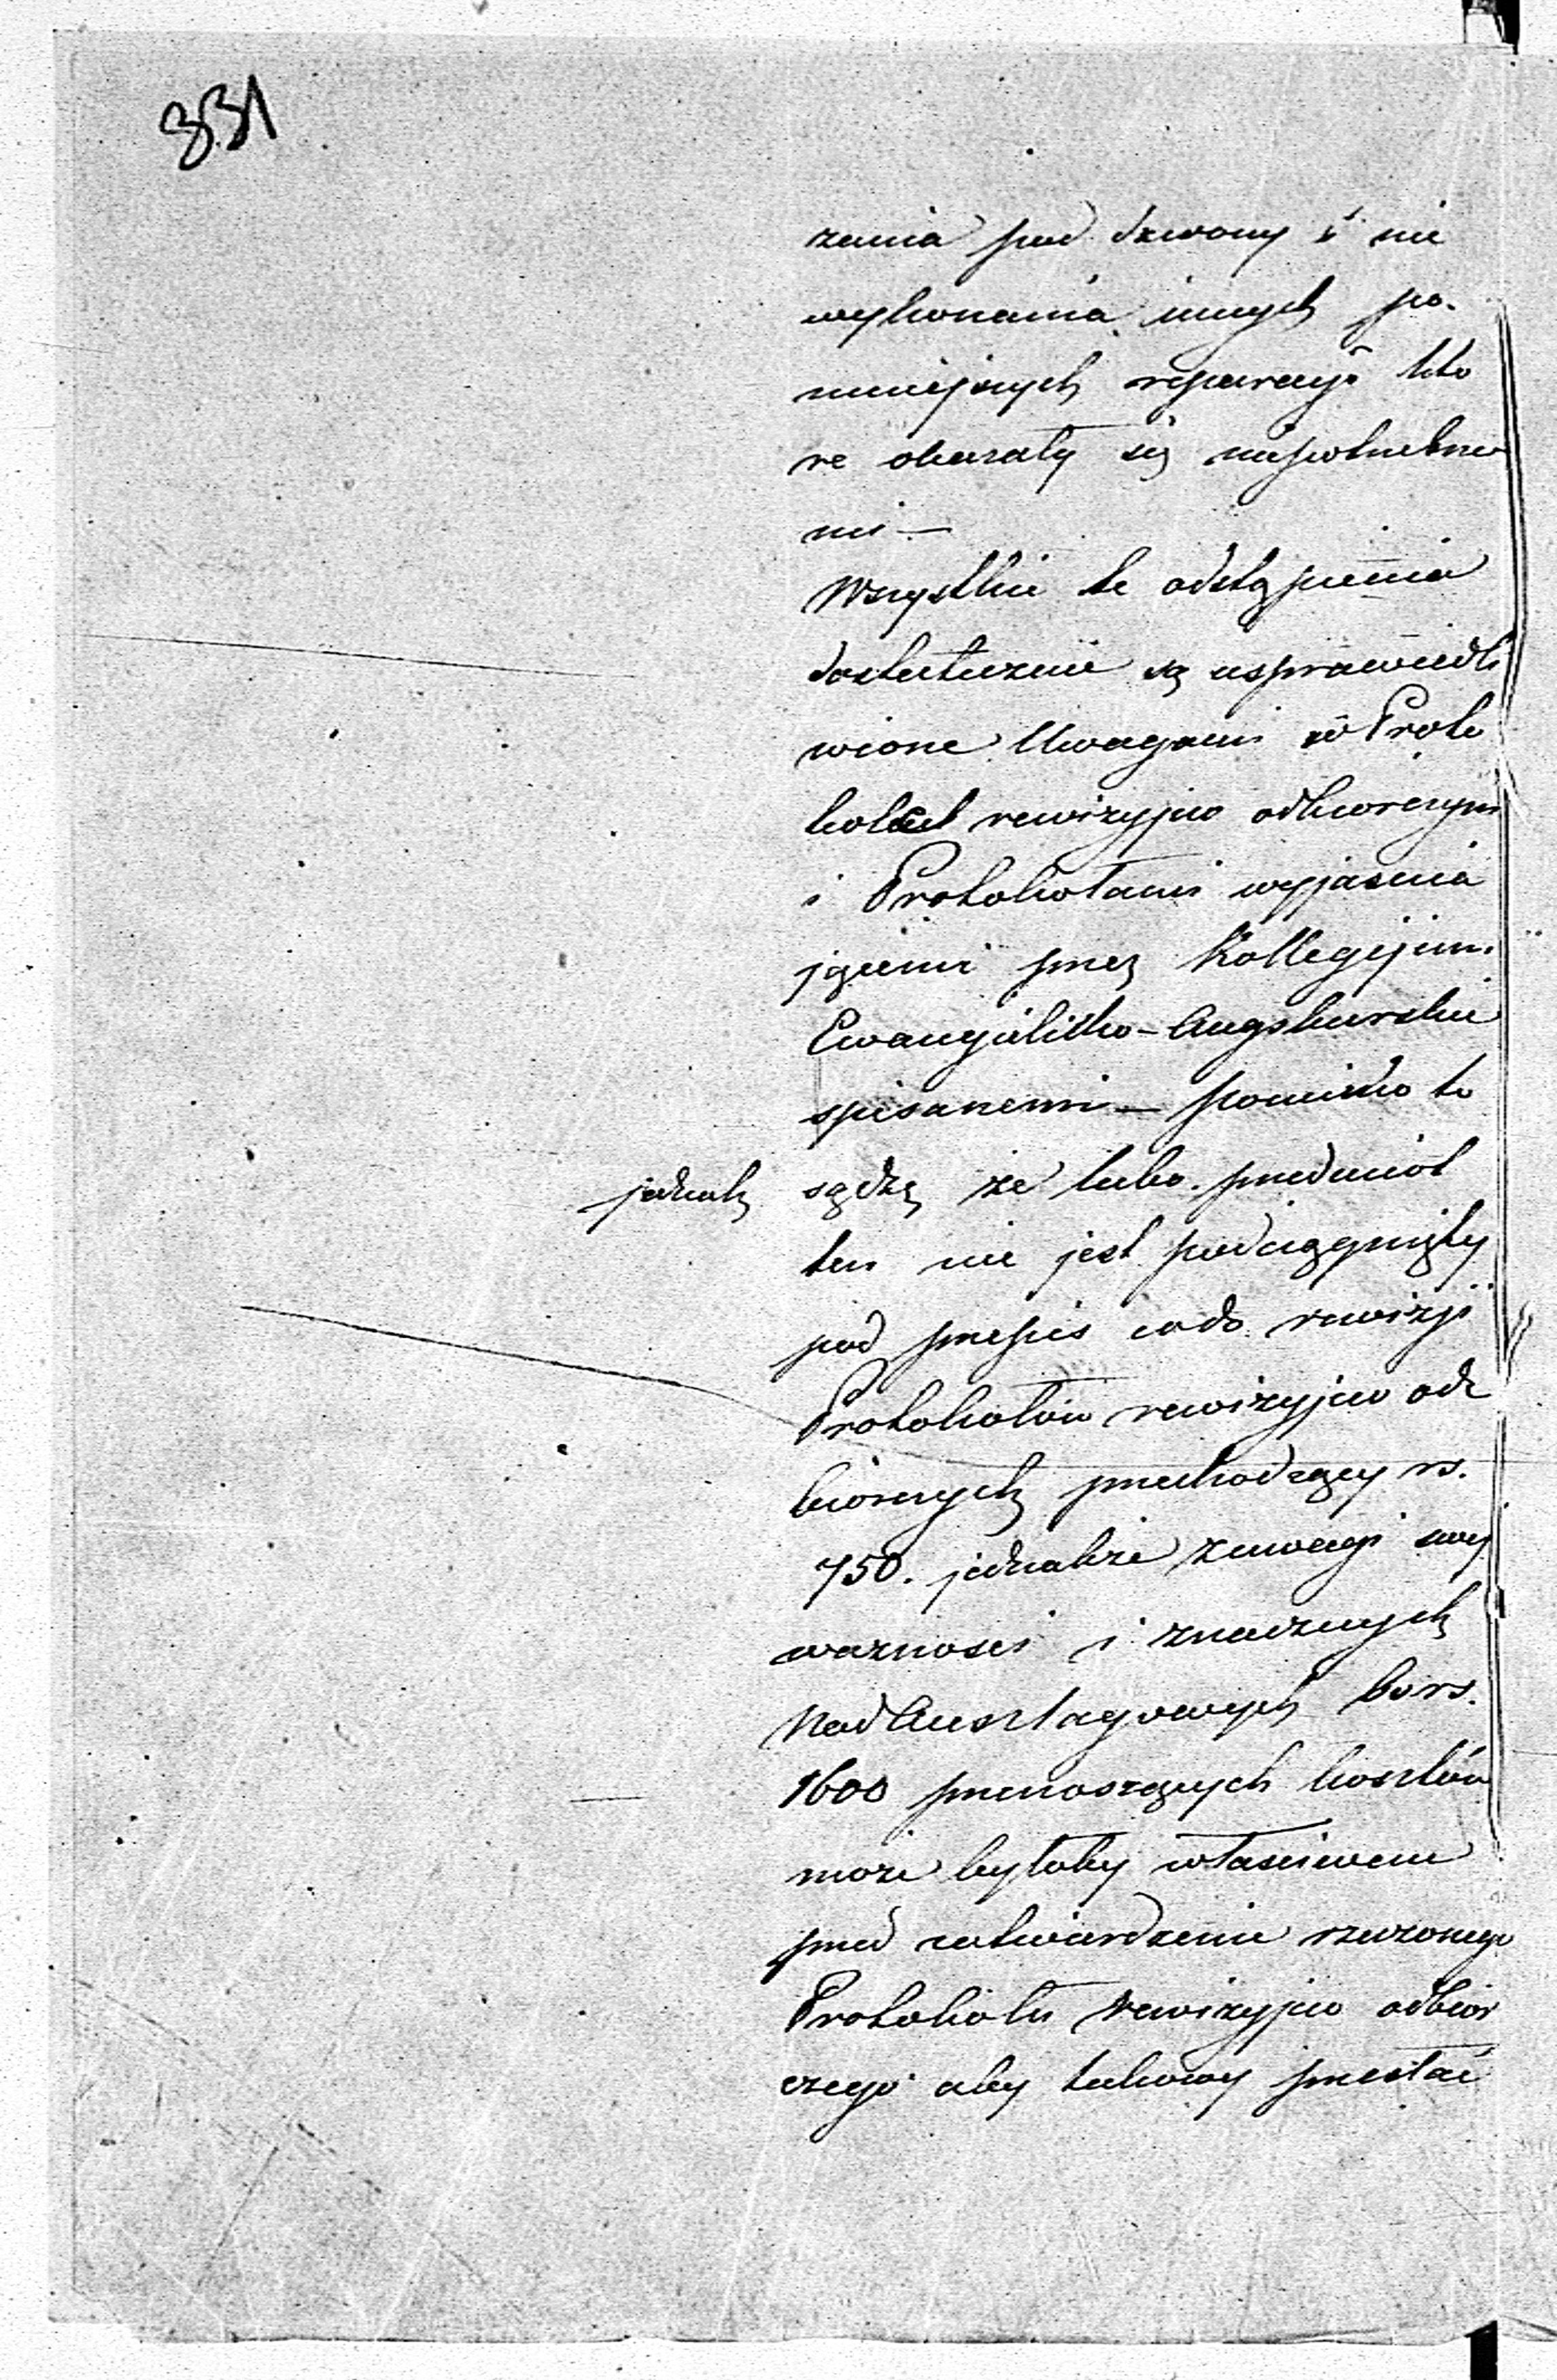 831
zania pod dzwony i nie
wykonania innych po.
mniejszych reparacyi kto
re okazały się niepotrzebne
mi —
Wszystkie te odstąpienia
dostatecznie są usprawiedli
wione Uwagami w Proto
kole rewizyjno odbiorczym
i Protokołami wyjasnia
jącemi przez Kollegijum
Ewangielicko-Augsburskie
spisanemi — pomimo to
jednak sądzę że lubo przedmiot
ten nie jest podciągnięty
pod przepis co do rewizyi
Protokołów rewizyjno od
biorczych przechodzący rs.
750. jednakże z uwagi swej
waznosci i znacznych
nad Anszlagowych bo rs.
1600 przenoszących kosztów
może byłoby właściwem
przed zatwierdzenie rzeczonego
Protokołu rewizyjno odbior
czego aby takowy przesłać